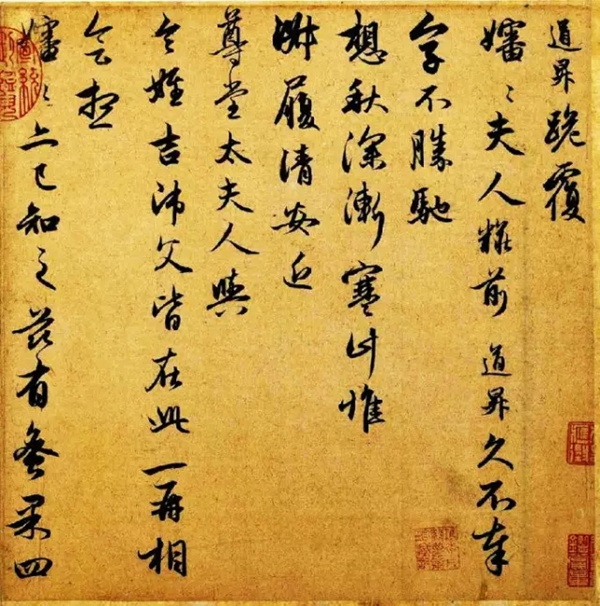 道昇跪覆
嬸々夫人粧前道昇久不奉
字不勝馳
想秋深漸寒計惟
淑履清安近
尊堂太夫人與
令姪吉師父皆在此一再相
會想
嬸々亦已知之茲有蜜果四